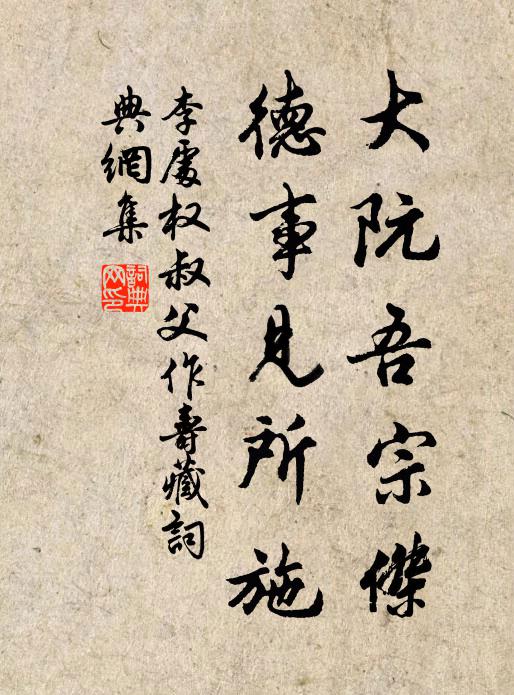 大阮吾宗傑
德事見所施
李處权叔父作壽藏詞
典網集
詞典網印